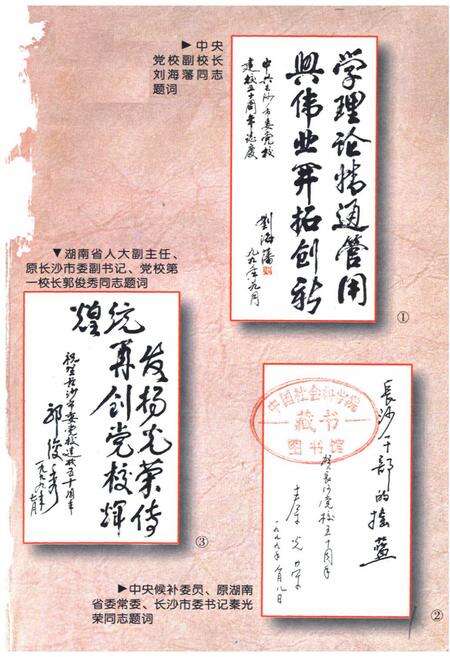 ▶中央
党校副校长
刘海藩同志
题词
学理论精通管用
兴伟业开拓创新
中共长沙市委党校
建校五十周年志庆
刘海藩
一九九九年九月
①
▼湖南省人大副主任、
原长沙市委副书记、党校第
一校长郭俊秀同志题词
发扬光荣传
统再创党校辉
煌
祝贺长沙市委党校建校五十周年
郭俊秀
③
长沙干部的摇篮
贺长沙党校五十周年
秦光荣
一九九九年八月八日
中国社会科学院
藏书
图书馆
②
▶中央候补委员、原湖南
省委常委、长沙市委书记秦光
荣同志题词